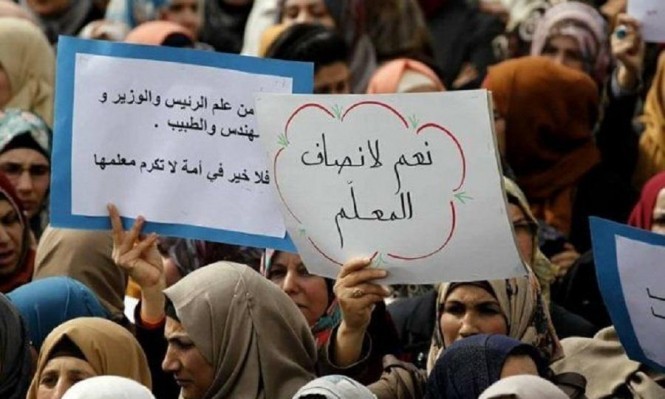 من علم الرئيس والوزير و
والطبيب .
فلا خير في أمة لا تكرم معلمها
نعم لانصاف
المعلّم